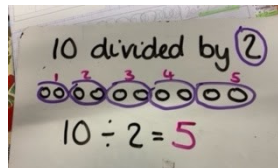 10 divided by 2
1 2 3 4 5
10 ÷ 2 = 5